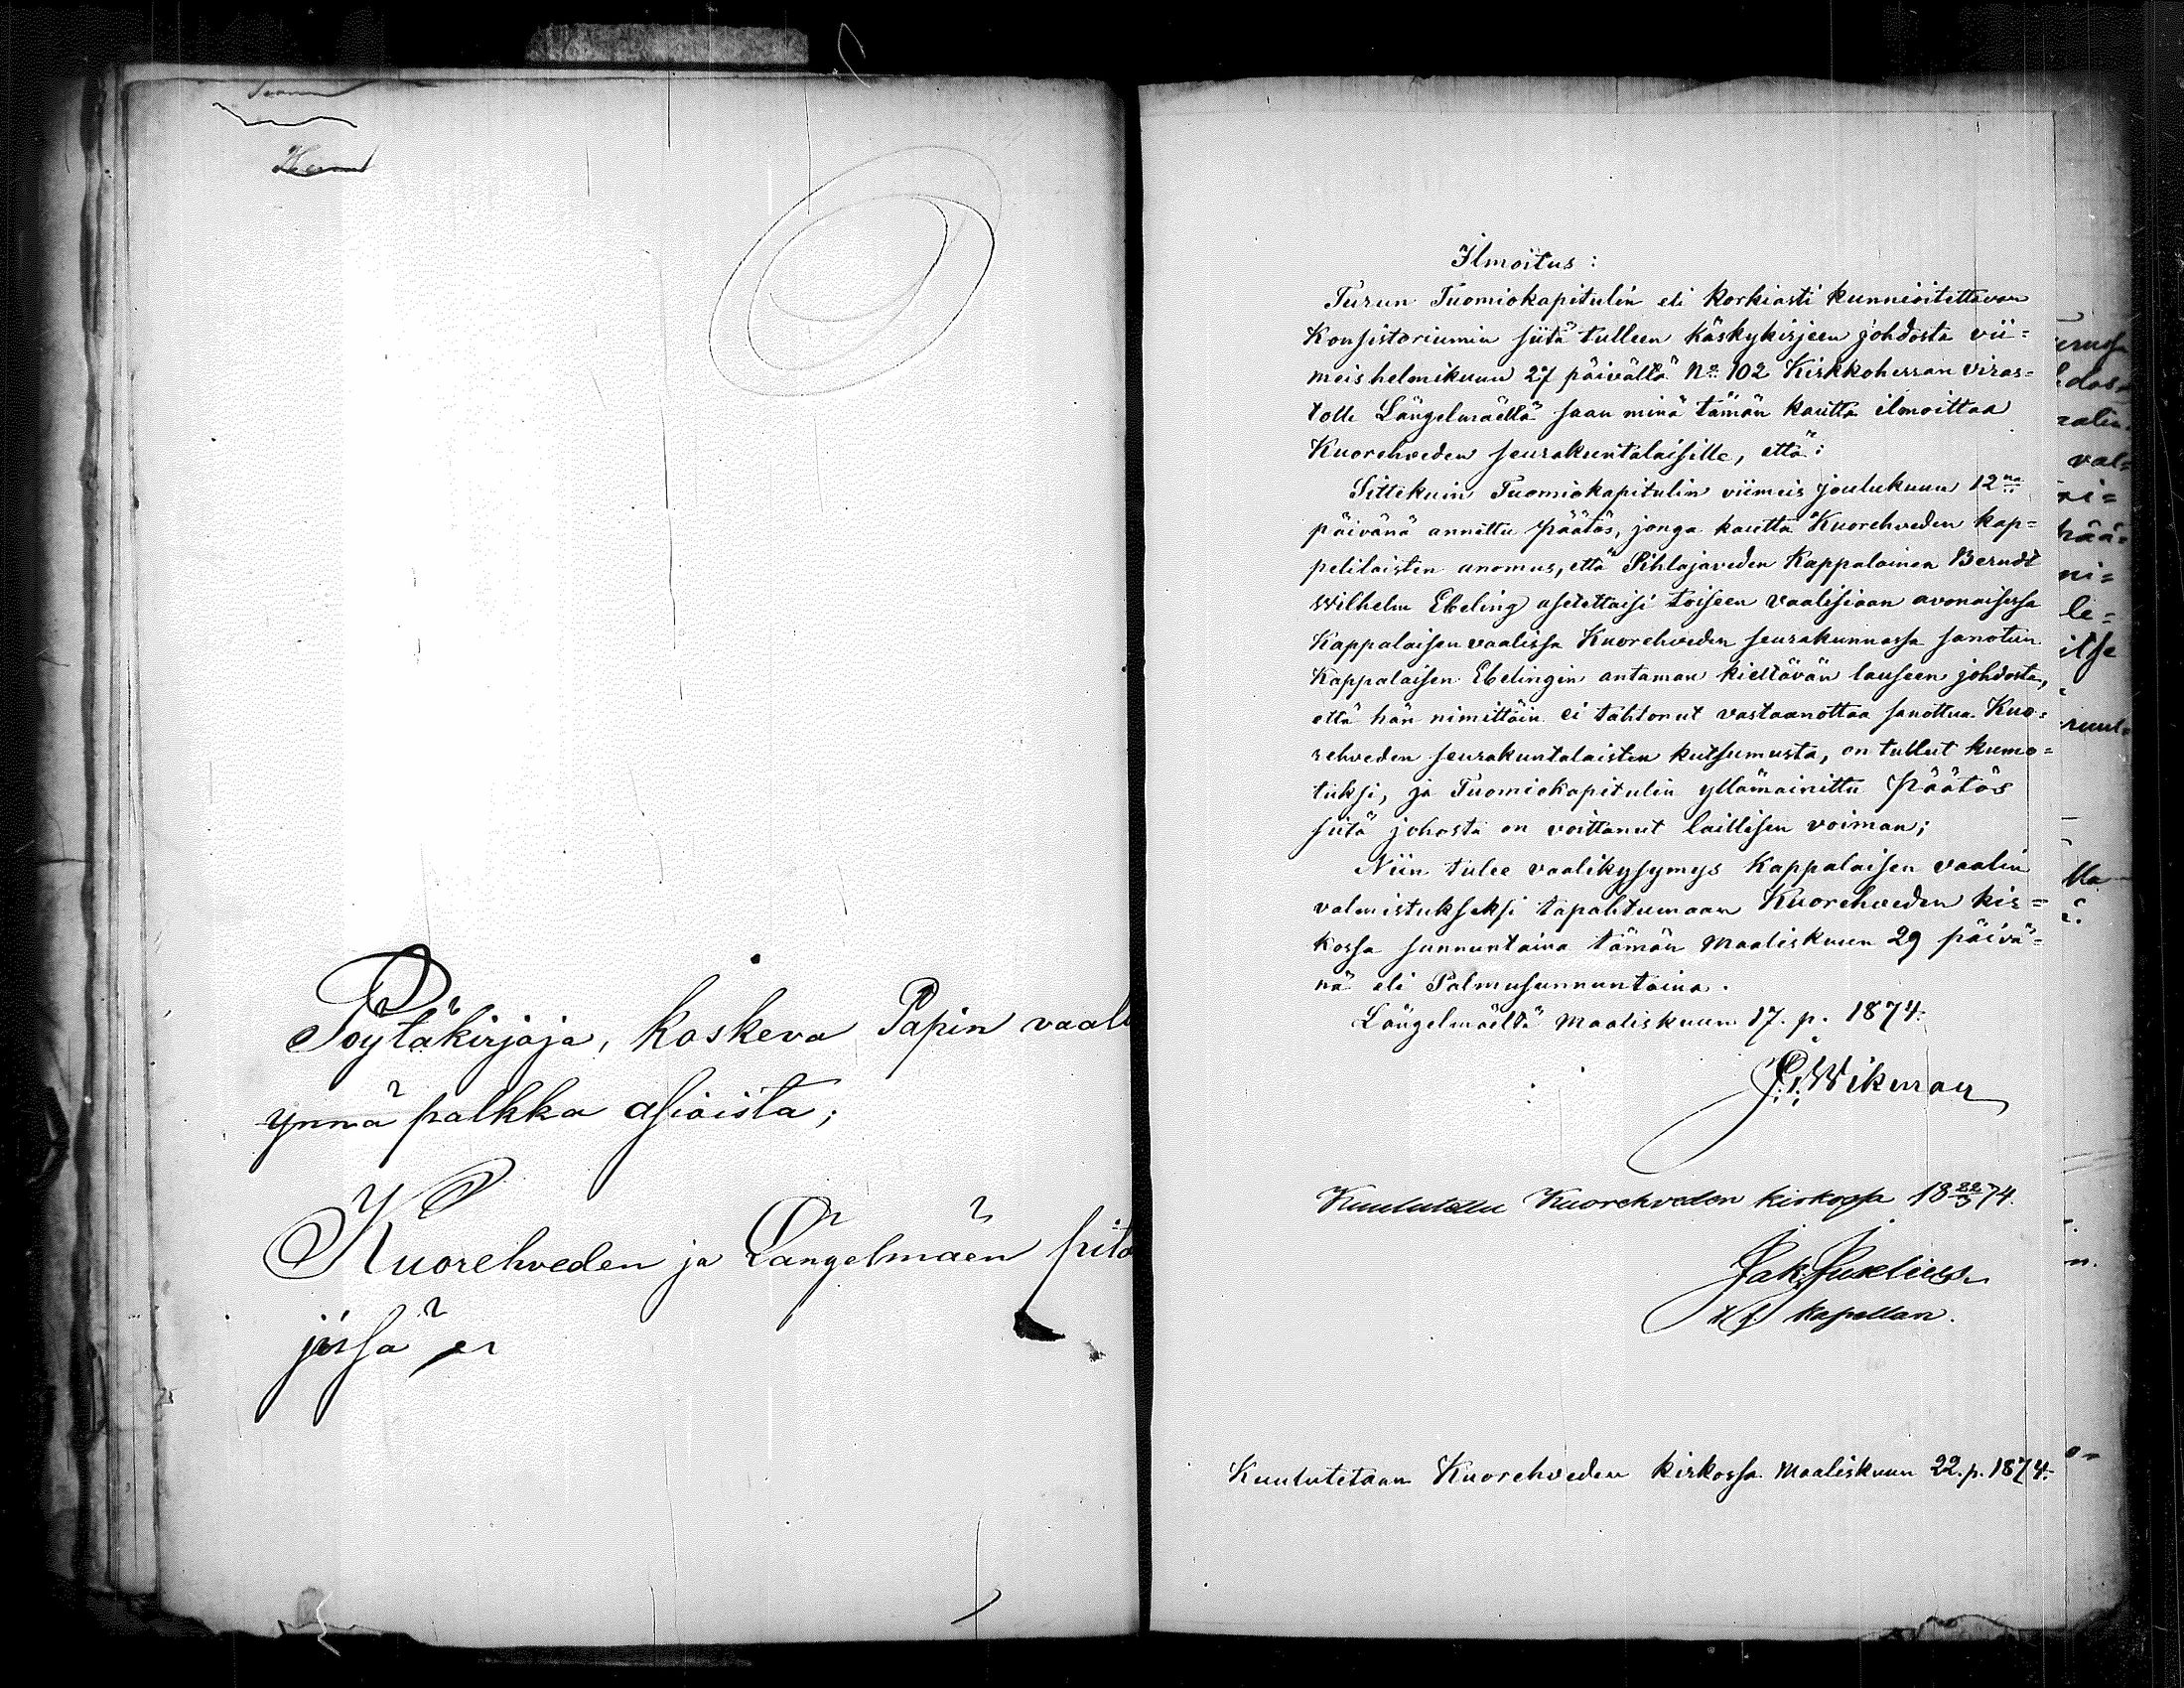 Pöytäkirjoja, koskeva Papin vaali
ynnä palkka asioista;
Kuorehveden ja Längelmäen pitä
jissä
Ilmoitus:
Turun Tuomiokapitulin eli korkiasti kunnioitettavan
Konsistoriumin siitä tulleen käskykirjeen johdosta vii=
meis helmikuun 27 päivältä No 102 Kirkkoherran viras=
tolle Längelmäellä saan minä tämän kautta ilmoittaa
Kuorehveden seurakuntalaisille, että:
Sittekuin Tuomiokapitulin viimeis joulukuun 12na
päivänä annettu päätös, jonga kautta Kuorehveden kap=
pelilaisten anomus, että Pihlajaveden Kappalainen Berndt
Wilhelm Ebeling asetettaisi toiseen vaalisiaan avonaisessa
Kappalaisen vaalissa Kuorehveden seurakunnassa sanotun
Kappalaisen Ebelingin antaman kieltävän lauseen johdosta,
että hän nimittäin ei tahtonut vastaanottaa sanottua Kuo=
rehveden seurakuntalaisten kutsumusta, on tullut kumo=
tuksi, ja Tuomiokapitulin yllämainittu päätös
siitä johosta on voittanut laillisen voiman;
Niin tulee vaalikysymys Kappalaisen vaalin
valmistukseksi tapahtumaan Kuorehveden kir=
kossa sunnuntaina tämän Maaliskuun 29 päivä=
nä eli Palmusunnuntaina.
Längelmäellä Maaliskuun 17. p. 1874.
Wikman
Kuulutettu Kuorehveden kirkossa 18 22/3 74.
Jak.
kapellan.
Kuulutetaan Kuorehveden kirkossa Maaliskuun 22. p. 1874.